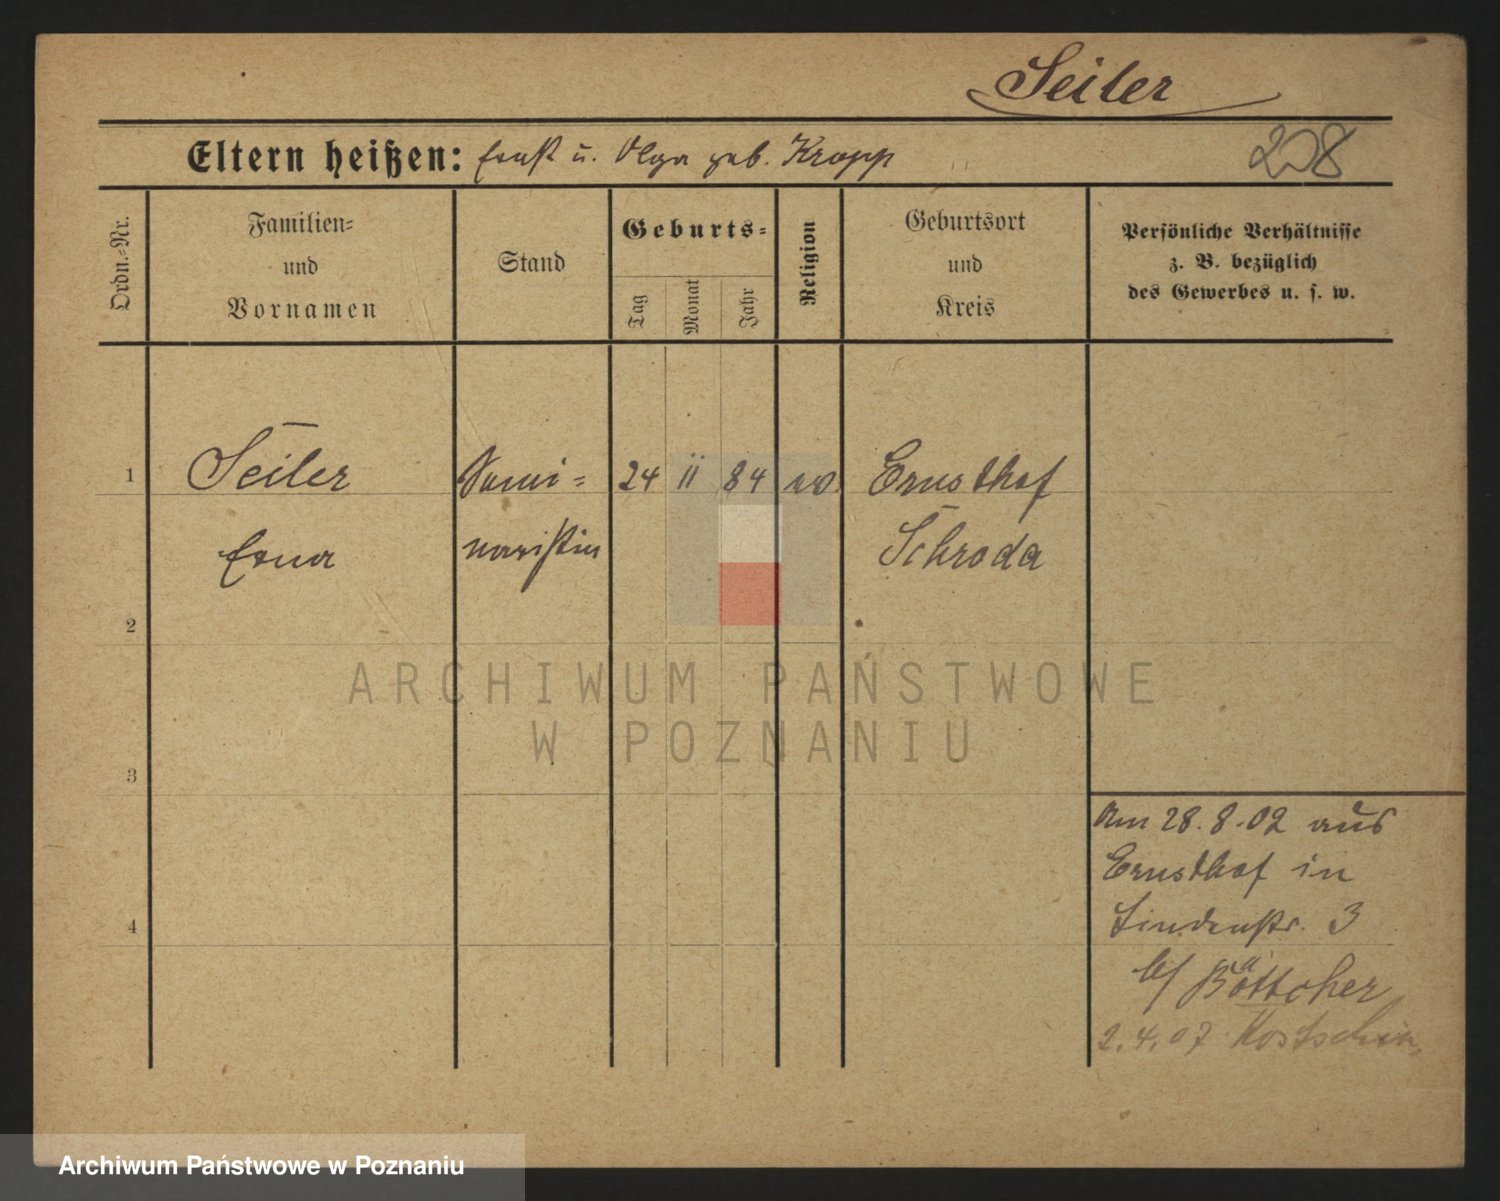 Seiler
Eltern heißen: Ernst u. Olga geb. Kropp
208
Ordn.-Nr.
Familien-
und
Vornamen
Stand
Geburts-
Tag
Monat
Jahr
Religion
Geburtsort
und
Kreis
Persönliche Verhältnisse
z. B. bezüglich
des Gewerbes u. s. w.
1 Seiler Semi- 24 II 84 ev. Ernsthof
Erna naristin Schroda
2
3
4
Am 28.8.02 aus
Ernsthof in
Lindenstr. 3
b/ Böttcher
2.4.07 Kostschin
ARCHIWUM PAŃSTWOWE
W POZNANIU
Archiwum Państwowe w Poznaniu